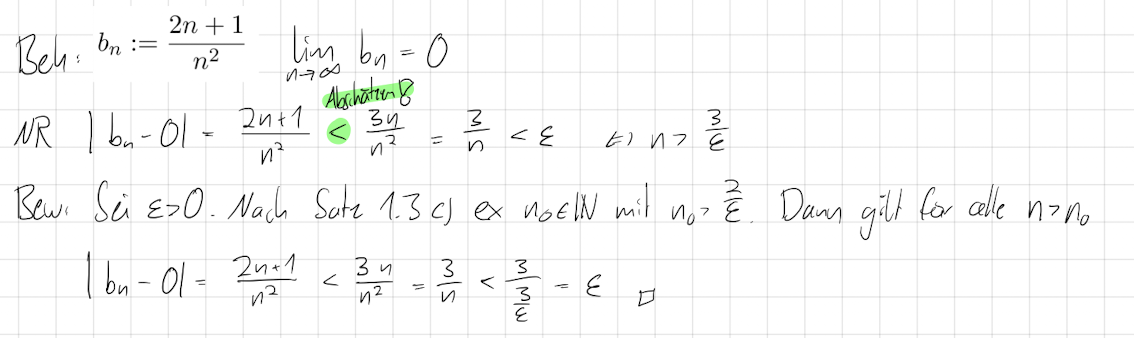 Beh: bₙ := (2n + 1)/n² lim n→∞ bₙ = 0
Abschätzung
NR |bₙ - 0| = (2n+1)/n² < 3n/n² = 3/n < ε ⇔ n > 3/ε
Bew: Sei ε>0. Nach Satz 1.3 c) ex n₀∈ℕ mit n₀ > 2/ε. Dann gilt für alle n>n₀
|bₙ - 0| = (2n+1)/n² < 3n/n² = 3/n < 3/(3/ε) = ε □